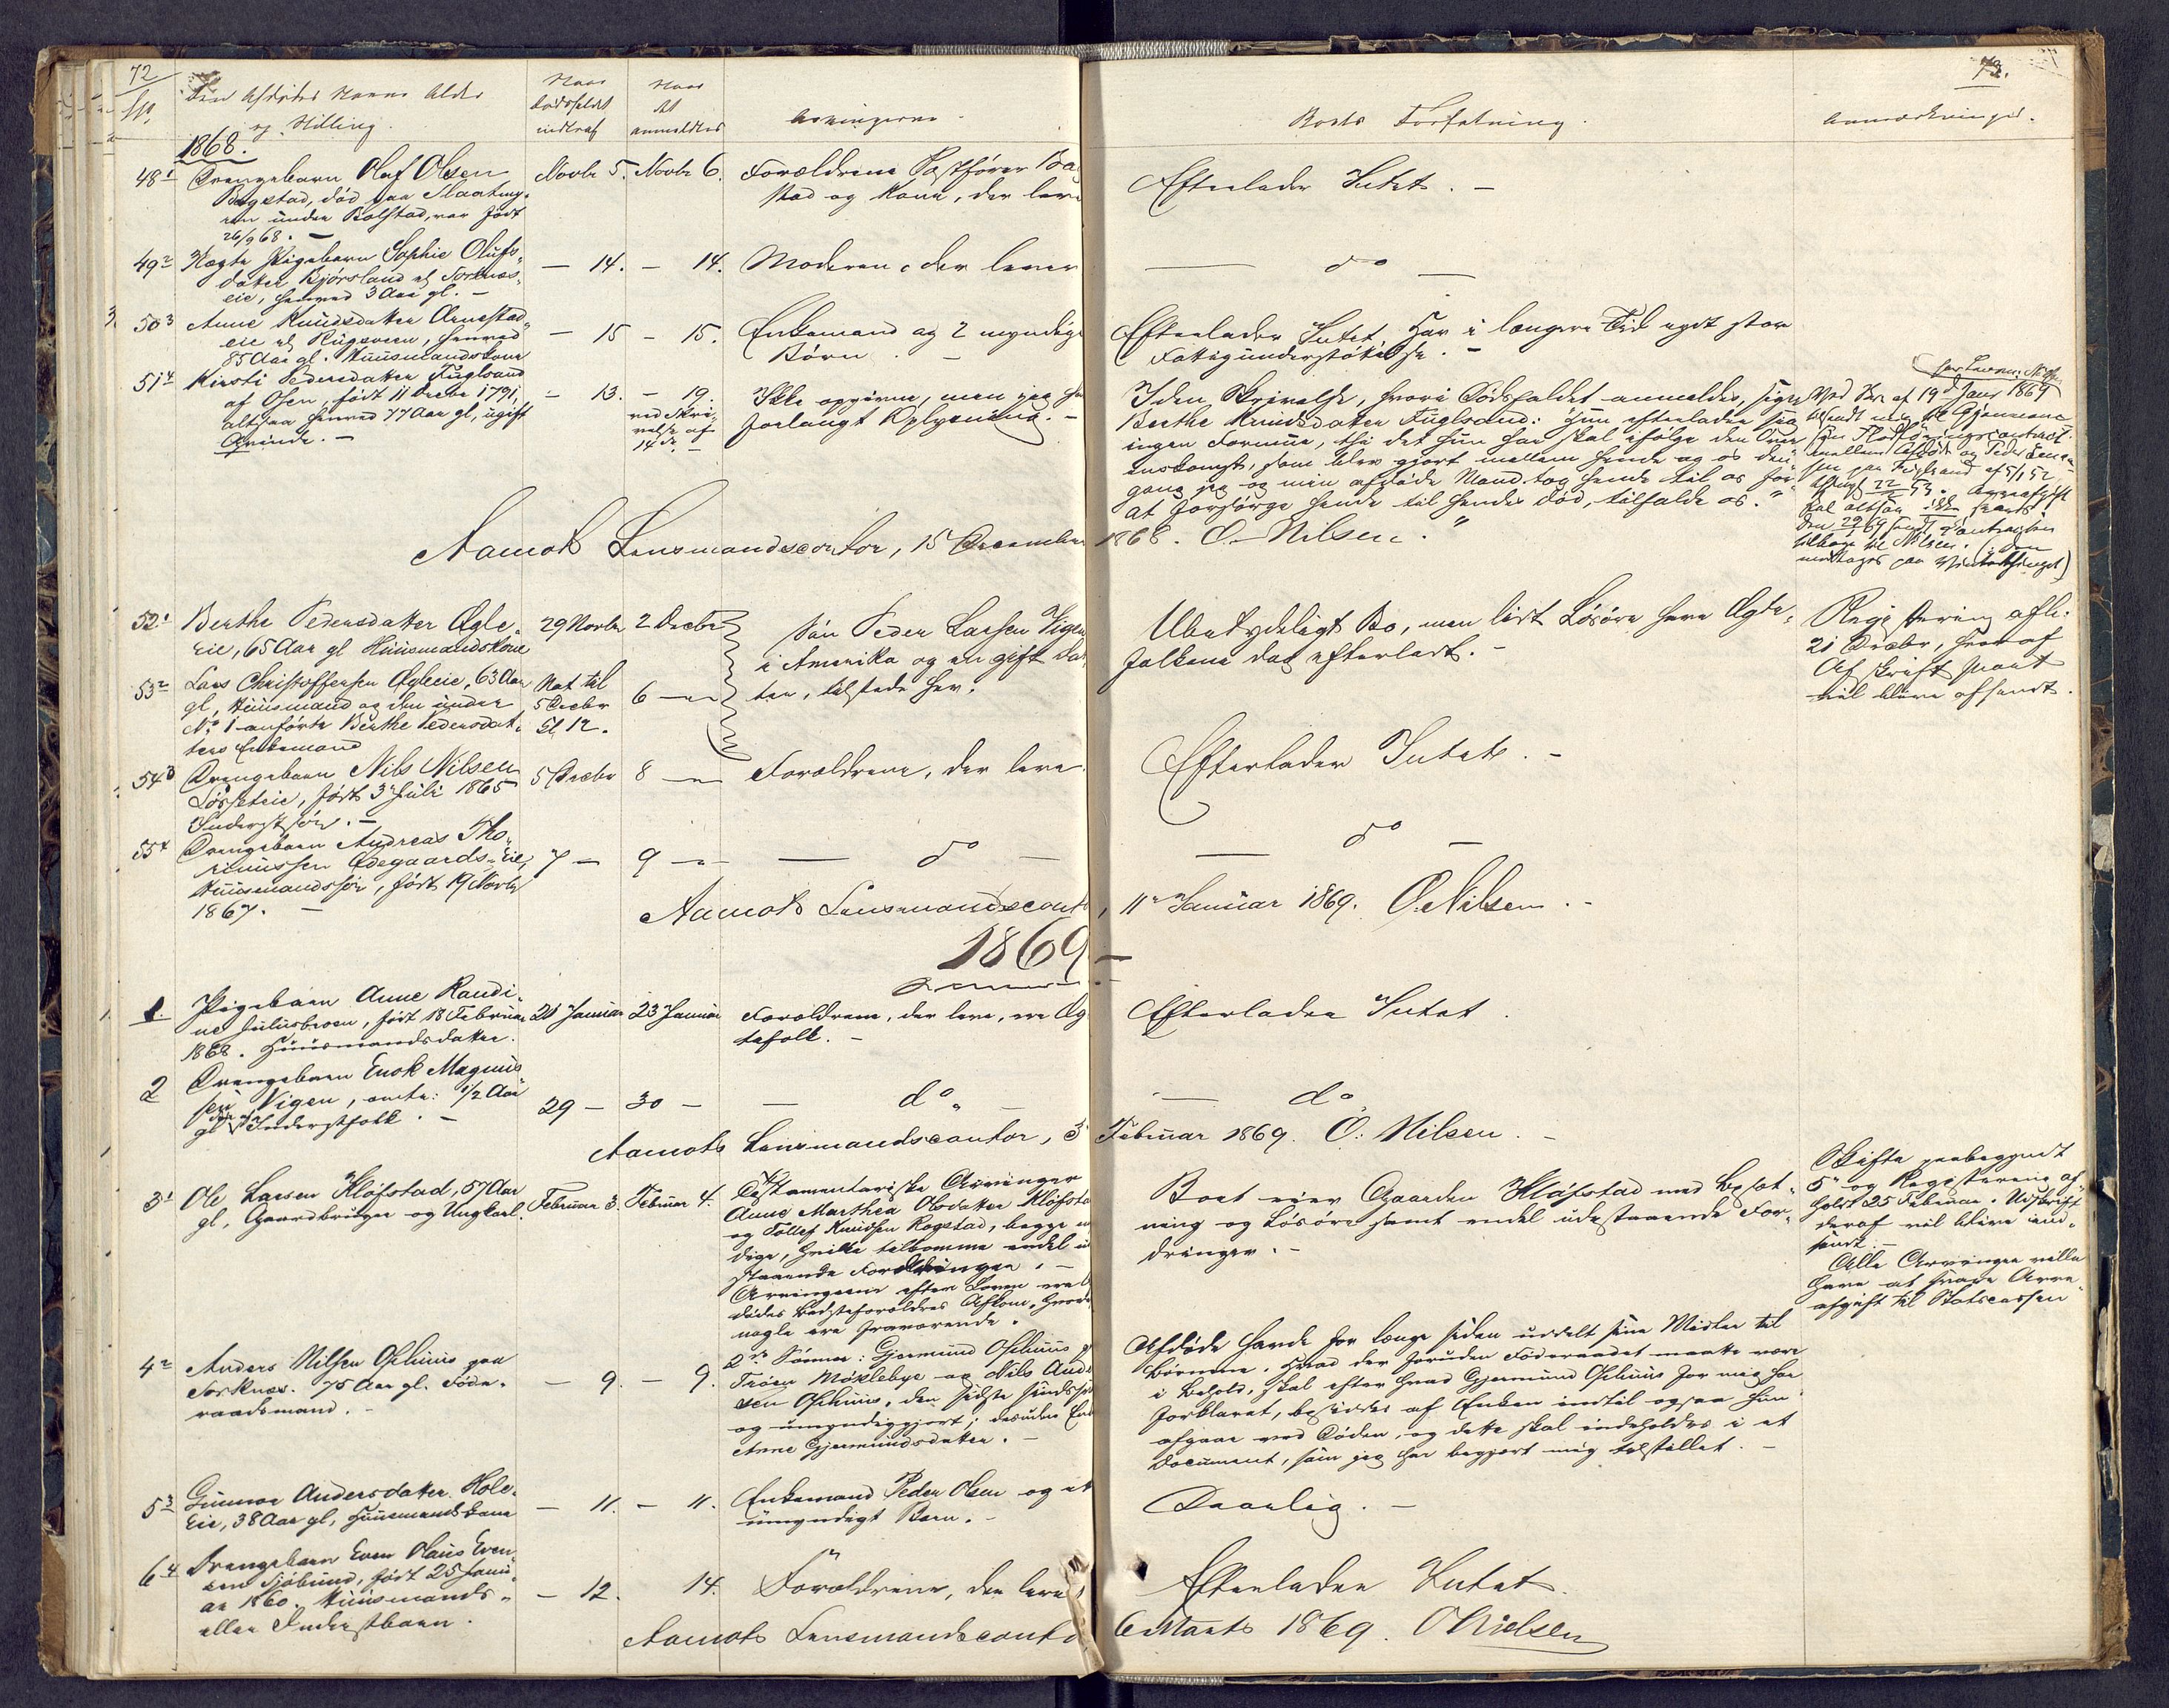 72
No
Den Afdødes Navn Alder
og Stilling.
Naar
Dødsfaldet
indtraf
Naar
det
anmeldtes
Arvingerne.
Boets Forfatning.
Anmærkninger.
73.
1868.
48 1 Drengebarn Olaf Olsen
Bagstad, død paa
under Bolstad, var født
26/9 68. –
Novbr 5. Novbr 6. Forældrene
stad og Kone, der leve
Efterlader Intet. –
49 2 Uægte Pigebarn Sophie Olufs-
datter Kjørsland af Torknæs-
eie, henved 3 Aar gl. –
– 14. – 14. Moderen, der lever
– do –
50 3 Anne Knudsdatter Arnestad-
eie af henved
85 Aar gl. Huusmandskone
– 15 – 15. Enkemand og 2 myndige
Børn. –
Efterlader Intet, Har i længere Tid nydt stor
Fattigunderstøttelse. –
51 4 Kirsti Pedersdatter Fuglsand
af Osen, født 11 Decbr 1791,
altsaa henved 77 Aar gl, ugift
Qvinde. –
– 13. – 19.
ved Skri-
velse af
14 de. –
Ikke opgivne, men jeg har
forlangt Oplysning. –
I den Skrivelse, hvori Dødsfaldet anmeldes, siger
Berthe Knudsdatter Fuglsand: "Hun efterlader sig
ingen Formue, thi det hun har skal ifølge den Over-
enskomst, som blev gjort mellem hende og os den-
gang jeg og min afdøde Mand tog hende til os for
at forsørge hende til hendes Død, tilfalde os."
Ved Brev af 19de Janr 1869
tilsendt mig til Gjennem-
syn
mellem Afdøde og Peder
sen paa Fuglsand af 5/1 52
Arveafgift
skal altsaa ikke svares
tilbage til Nilsen.
Aamots Lensmandscontor, 15 December 1868. O. Nilsen.
52 1 Berthe Pedersdatter Ogle-
eie, 65 Aar gl Huusmandskone
29 Novbr 2 Decbr
Søn Peder Larsen Vigen
i Amerika og en gift Dat-
ter, tilstede her.
Ubetydeligt Bo, men lidt Løsøre have Ægte-
folkene dog efterladt. –
Registrering afh.
21 Decbr, hvoraf
Afskrift snart
vil blive afsendt.
53 2 Lars Christoffersen Ogleeie. 63 Aar
gl, Huusmand og den under
No 1 anførte Berthe Pedersdat-
ters Enkemand
Nat til
5 Decbr
Kl 12.
6 –
54 3 Drengebarn Nils Nilsen
Løsseteie, født 3 Juli 1865
Inderstsøn. –
5 Decbr 8 – Forældrene, der leve
Efterlader Intet. –
55 4 Drengebarn Andreas Tho-
Ødegaards-Eie,
Huusmandssøn, født 19 Novbr
1867. –
7 – 9 – – do –
– do –
Aamots Lensmandscontor, 11 Januar 1869. O. Nilsen. –
1869 –
1. Pigebarn Anne Randi-
ne Juliusbroen, født 18 Februar
1868. Huusmandsdatter.
21 Januar 23 Januar Forældrene, der leve, ere Æg-
tefolk. –
Efterlader Intet.
2 Drengebarn Enok Magnus-
sen Vigen, omtr: 1/2 Aar
gl Inderstfolk. –
29 – 30 – – do –
– do
Aamots Lensmandscontor, 3 Februar 1869. O. Nilsen. –
3 1 Ole Larsen Kløfstad, 57 Aar
gl, Gaardbruger og Ungkarl.
Februar 3. Februar 4.
Testamentariske Arvinger
Anne Marthea Olsdatter Kløfstad
og Tollef Knudsen Rogstad, begge
dige, hvilke tilkomme endel
staaende Fordringer. –
Arvingerne efter Loven ere
dødes Bedsteforældres Afkom, hvoraf
nogle ere fraværende.
Boet eier Gaarden Kløfstad med Besæt-
ning og Løsøre samt endel udestaaende For-
dringer. –
Skifte paabegyndt
5 og Registrering af-
holdt 25 Februar. Udskrift
deraf vil blive ind-
sendt. –
Alle Arvinger ville
have at svare Arve-
afgift til Statscassen
4 2 Anders Nilsen Oshuus paa
Torknæs. 75 Aar gl. Føde-
raadsmand. –
– 9. – 9.
2de Sønner: Gjermund Oshuus
Trøen Møklebye og Nils Ander-
sen Oshuus, den sidste sindssyg
og umyndiggjort; desuden Enke
Anne Gjermundsdatter. –
Afdøde havde for længe siden uddelt sine Midler til
Børnene. Hvad der foruden Føderaadet maatte være
i Behold, skal efter hvad Gjermund Oshuus for mig har
forklaret, besiddes af Enken indtil ogsaa hun
afgaar ved Døden, og dette skal indeholdes i et
Document, som jeg har begjært mig tilstillet. –
5 3 Gunnor Andersdatter Hole-
Eie, 38 Aar gl, Huusmandskone
– 11. – 11. Enkemand Peder Olsen og et
umyndigt Barn. –
Daarlig. –
6 4 Drengebarn Even Olaus Even-
sen Sjøbund, født 25 Janu-
ar 1860. Huusmands-
eller Inderstbarn.
– 12. 14. Forældrene, der leve
Efterlader Intet.
Aamots Lensmandscontor 6 Marts 1869. O Nielsen